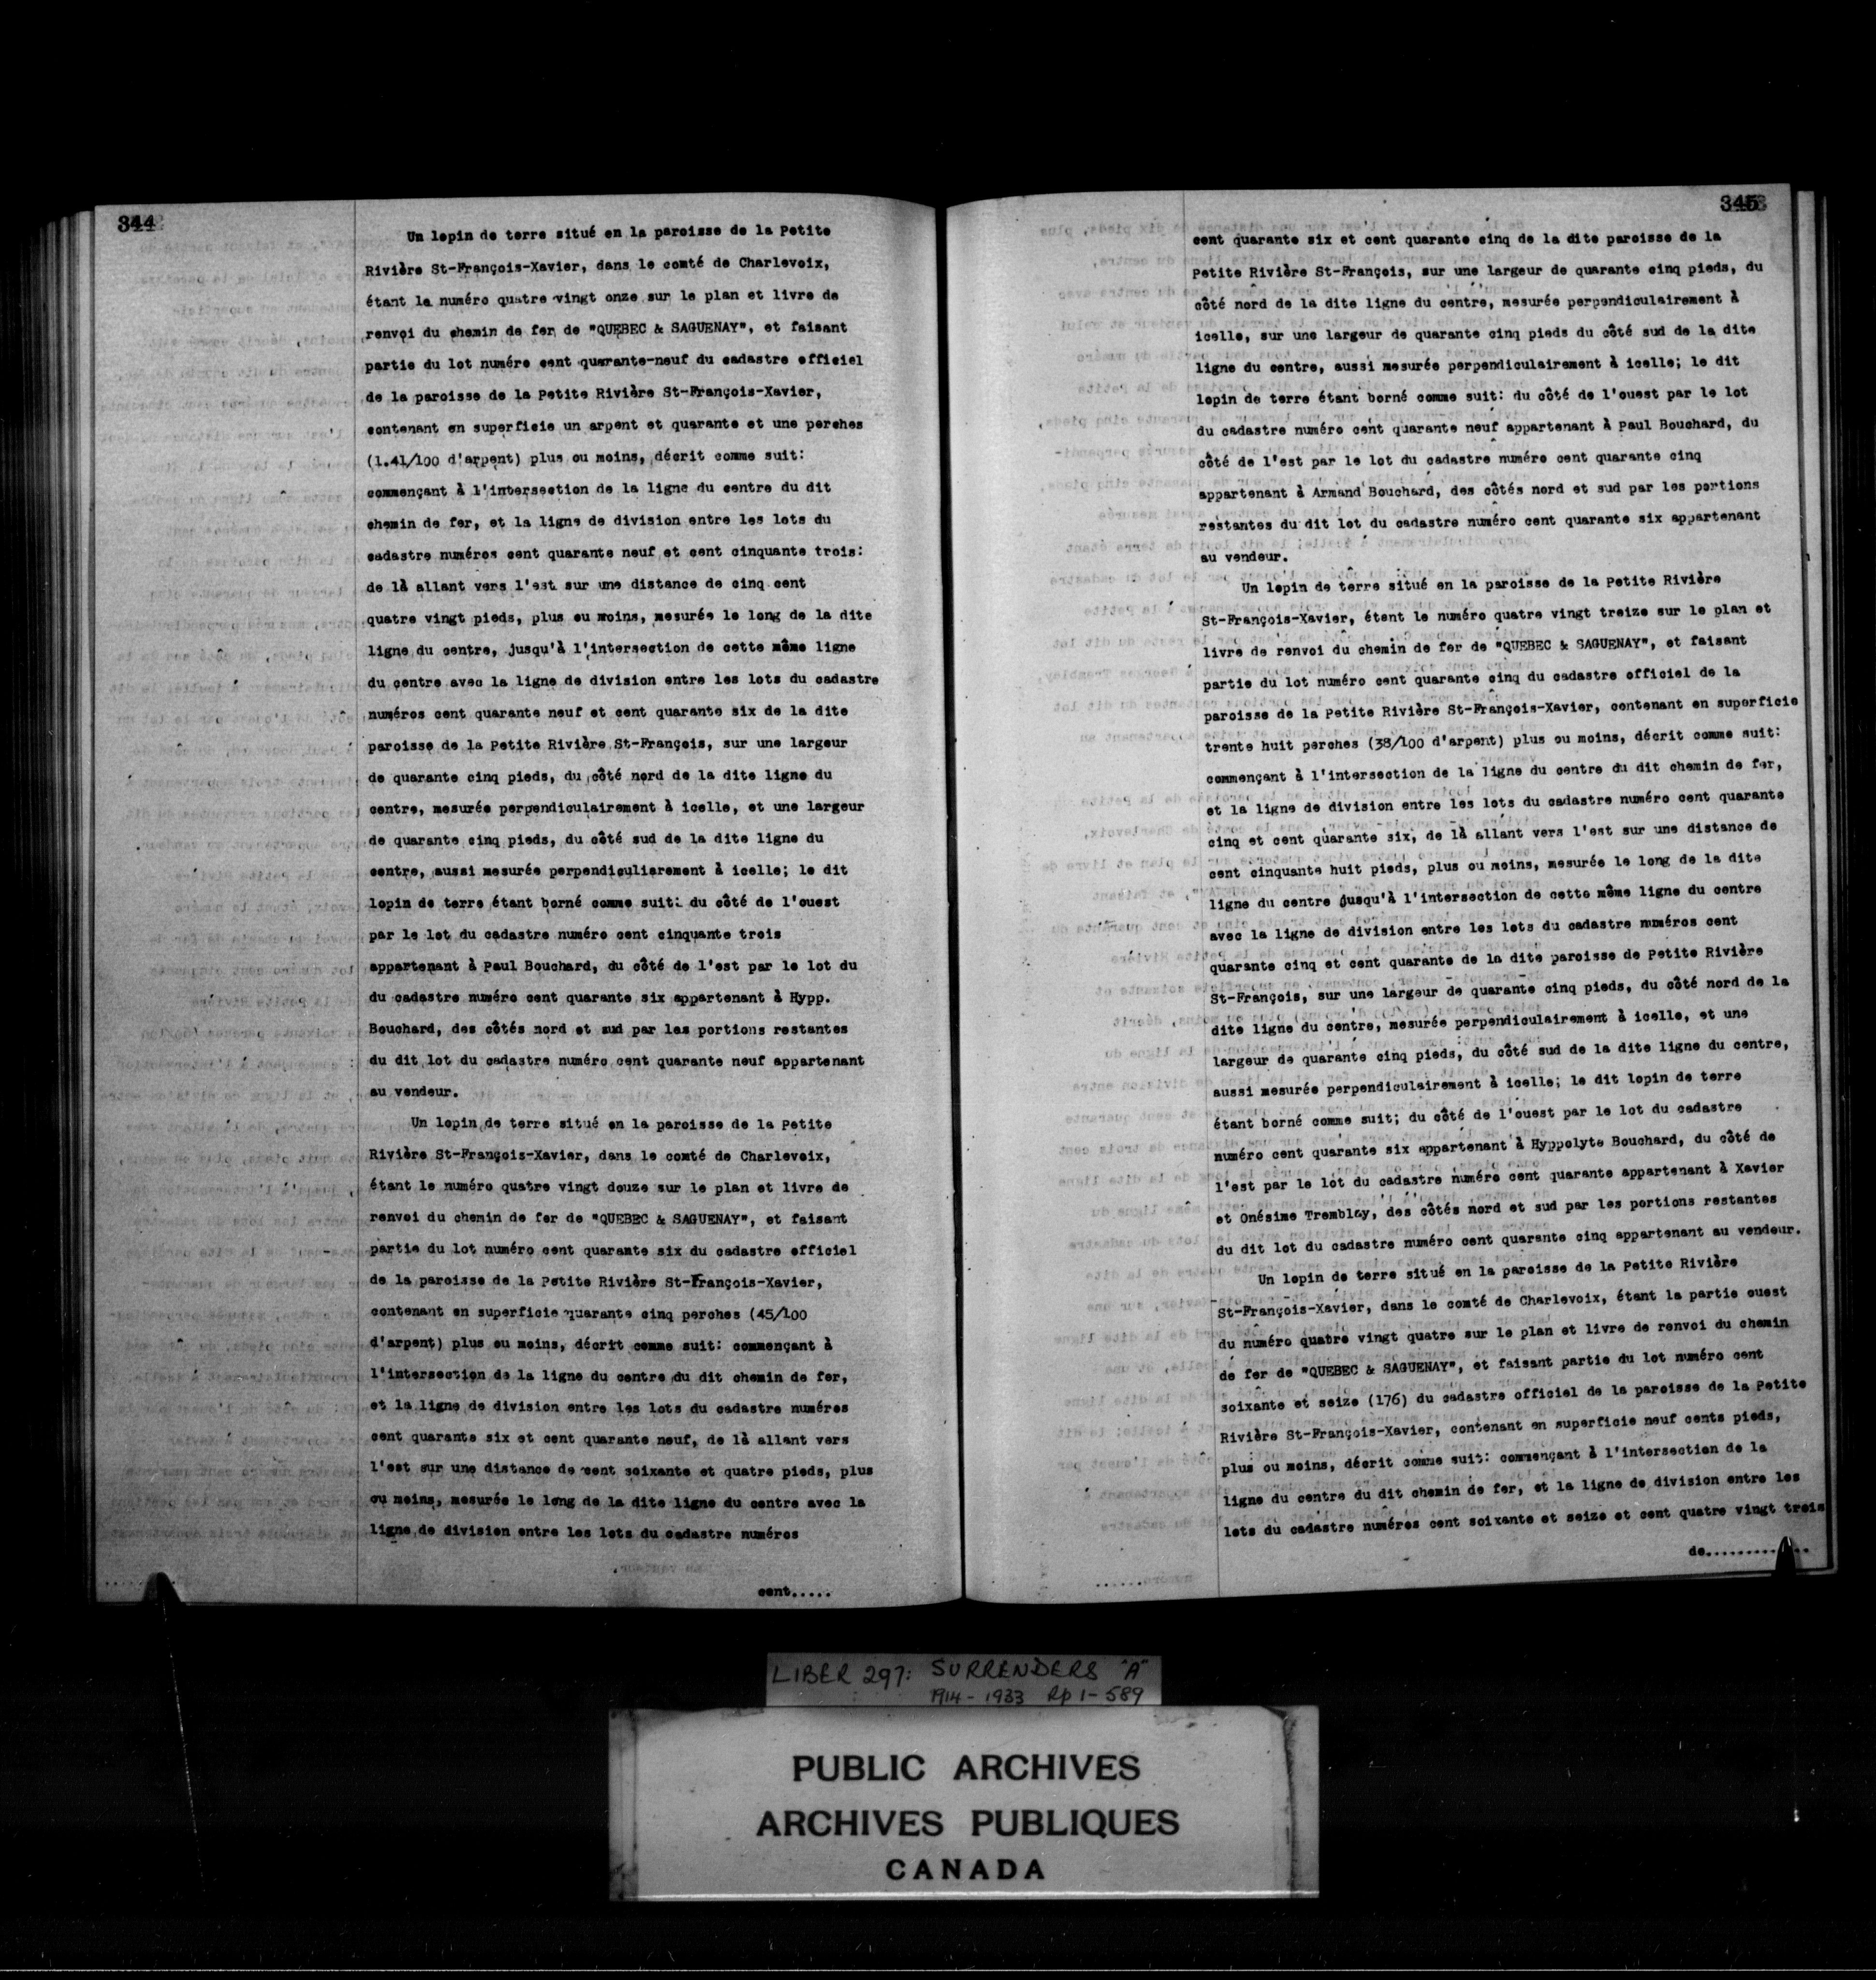 344
Un lopin de terre situé en la paroisse de la Petite
Rivière St-François-Xavier, dans le comté de Charlevoix,
étant le numéro quatre vingt onze sur le plan et livre de
renvoi du chemin de fer de "QUEBEC & SAGUENAY", et faisant
partie du lot numéro cent quarante-neuf du cadastre officiel
de la paroisse de la Petite Rivière St-François-Xavier,
contenant en superficie un arpent et quarante et une perches
(1.41/100 d'arpent) plus ou moins, décrit comme suit:
commençant à l'intersection de la ligne du centre du dit
chemin de fer, et la ligne de division entre les lots du
cadastre numéros cent quarante neuf et cent cinquante trois:
de là allant vers l'est sur une distance de cinq cent
quatre vingt pieds, plus ou moins, mesurée le long de la dite
ligne du centre, jusqu'à l'intersection de cette même ligne
du centre avec la ligne de division entre les lots du cadastre
numéros cent quarante neuf et cent quarante six de la dite
paroisse de la Petite Rivière St-François, sur une largeur
de quarante cinq pieds, du côté nord de la dite ligne du
centre, mesurée perpendiculairement à icelle, et une largeur
de quarante cinq pieds, du côté sud de la dite ligne du
centre, aussi mesurée perpendiculiarement à icelle; le dit
lopin de terre étant borné comme suit: du côté de l'ouest
par le lot du cadastre numéro cent cinquante trois
appartenant à Paul Bouchard, du côté de l'est par le lot du
du cadastre numéro cent quarante six appartenant à Hypp.
Bouchard, des côtés nord et sud par les portions restantes
du dit lot du cadastre numéro cent quarante neuf appartenant
au vendeur.
Un lopin de terre situé en la paroisse de la Petite
Rivière St-François-Xavier, dans le comté de Charlevoix,
étant le numéro quatre vingt douze sur le plan et livre de
renvoi du chemin de fer de "QUEBEC & SAGUENAY", et faisant
partie du lot numéro cent quarante six du cadastre officiel
de la paroisse de la Petite Rivière St-François-Xavier,
contenant en superficie quarante cinq perches (45/100
d'arpent) plus ou moins, décrit comme suit: commençant à
l'intersection de la ligne du centre du dit chemin de fer,
et la ligne de division entre les lots du cadastre numéros
cent quarante six et cent quarante neuf, de là allant vers
l'est sur une distance de cent soixante et quatre pieds, plus
ou moins, mesurée le long de la dite ligne du centre avec la
ligne de division entre les lots du cadastre numéros
cent.....
345
cent quarante six et cent quarante cinq de la dite paroisse de la
Petite Rivière St-François, sur une largeur de quarante cinq pieds, du
côté nord de la dite ligne du centre, mesurée perpendiculairement à
icelle, sur une largeur de quarante cinq pieds du côté sud de la dite
ligne du centre, aussi mesurée perpendiculairement à icelle; le dit
lopin de terre étant borné comme suit: du côté de l'ouest par le lot
du cadastre numéro cent quarante neuf appartenant à Paul Bouchard, du
côté de l'est par le lot du cadastre numéro cent quarante cinq
appartenant à Armand Bouchard, des côtés nord et sud par les portions
restantes du dit lot du cadastre numéro cent quarante six appartenant
au vendeur.
Un lopin de terre situé en la paroisse de la Petite Rivière
St-François-Xavier, étant le numéro quatre vingt treize sur le plan et
livre de renvoi du chemin de fer de "QUEBEC & SAGUENAY", et faisant
partie du lot numéro cent quarante cinq du cadastre officiel de la
paroisse de la Petite Rivière St-François-Xavier, contenant en superficie
trente huit perches (38/100 d'arpent) plus ou moins, décrit comme suit:
commençant à l'intersection de la ligne du centre du dit chemin de fer,
et la ligne de division entre les lots du cadastre numéro cent quarante
cinq et cent quarante six, de là allant vers l'est sur une distance de
cent cinquante huit pieds, plus ou moins, mesurée le long de la dite
ligne du centre jusqu'à l'intersection de cette même ligne du centre
avec la ligne de division entre les lots du cadastre numéros cent
quarante cinq et cent quarante de la dite paroisse de Petite Rivière
St-François, sur une largeur de quarante cinq pieds, du côté nord de la
dite ligne du centre, mesurée perpendiculairement à icelle, et une
largeur de quarante cinq pieds, du côté sud de la dite ligne du centre,
aussi mesurée perpendiculairement à icelle; le dit lopin de terre
étant borné comme suit; du côté de l'ouest par le lot du cadastre
numéro cent quarante six appartenant à Hyppolyte Bouchard, du côté de
l'est par le lot du cadastre numéro cent quarante appartenant à Xavier
et Onésime Tremblay, des côtés nord et sud par les portions restantes
du dit lot du cadastre numéro cent quarante cinq appartenant au vendeur.
Un lopin de terre situé en la paroisse de la Petite Rivière
St-François-Xavier, dans le comté de Charlevoix, étant la partie ouest
du numéro quatre vingt quatre sur le plan et livre de renvoi du chemin
de fer de "QUEBEC & SAGUENAY", et faisant partie du lot numéro cent
soixante et seize (176) du cadastre officiel de la paroisse de la Petite
Rivière St-François-Xavier, contenant en superficie neuf cents pieds,
plus ou moins, décrit comme suit: commençant à l'intersection de la
ligne du centre du dit chemin de fer, et la ligne de division entre les
lots du cadastre numéros cent soixante et seize et cent quatre vingt trois
de.............
LIBER 297: SURRENDERS "A"
1914-1933 Rp 1-589
PUBLIC ARCHIVES
ARCHIVES PUBLIQUES
CANADA